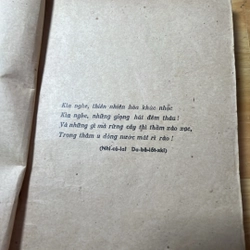 Kìa nghe, thiên nhiên hòa khúc nhạc
Kìa nghe, những giọng hát đêm thâu!
Và những gì mà rừng cây thì thầm xào xạc,
Trong thăm u dòng nước mãi rì rào!
(Nhi-cô-lai Do-bô-lốt-xki)